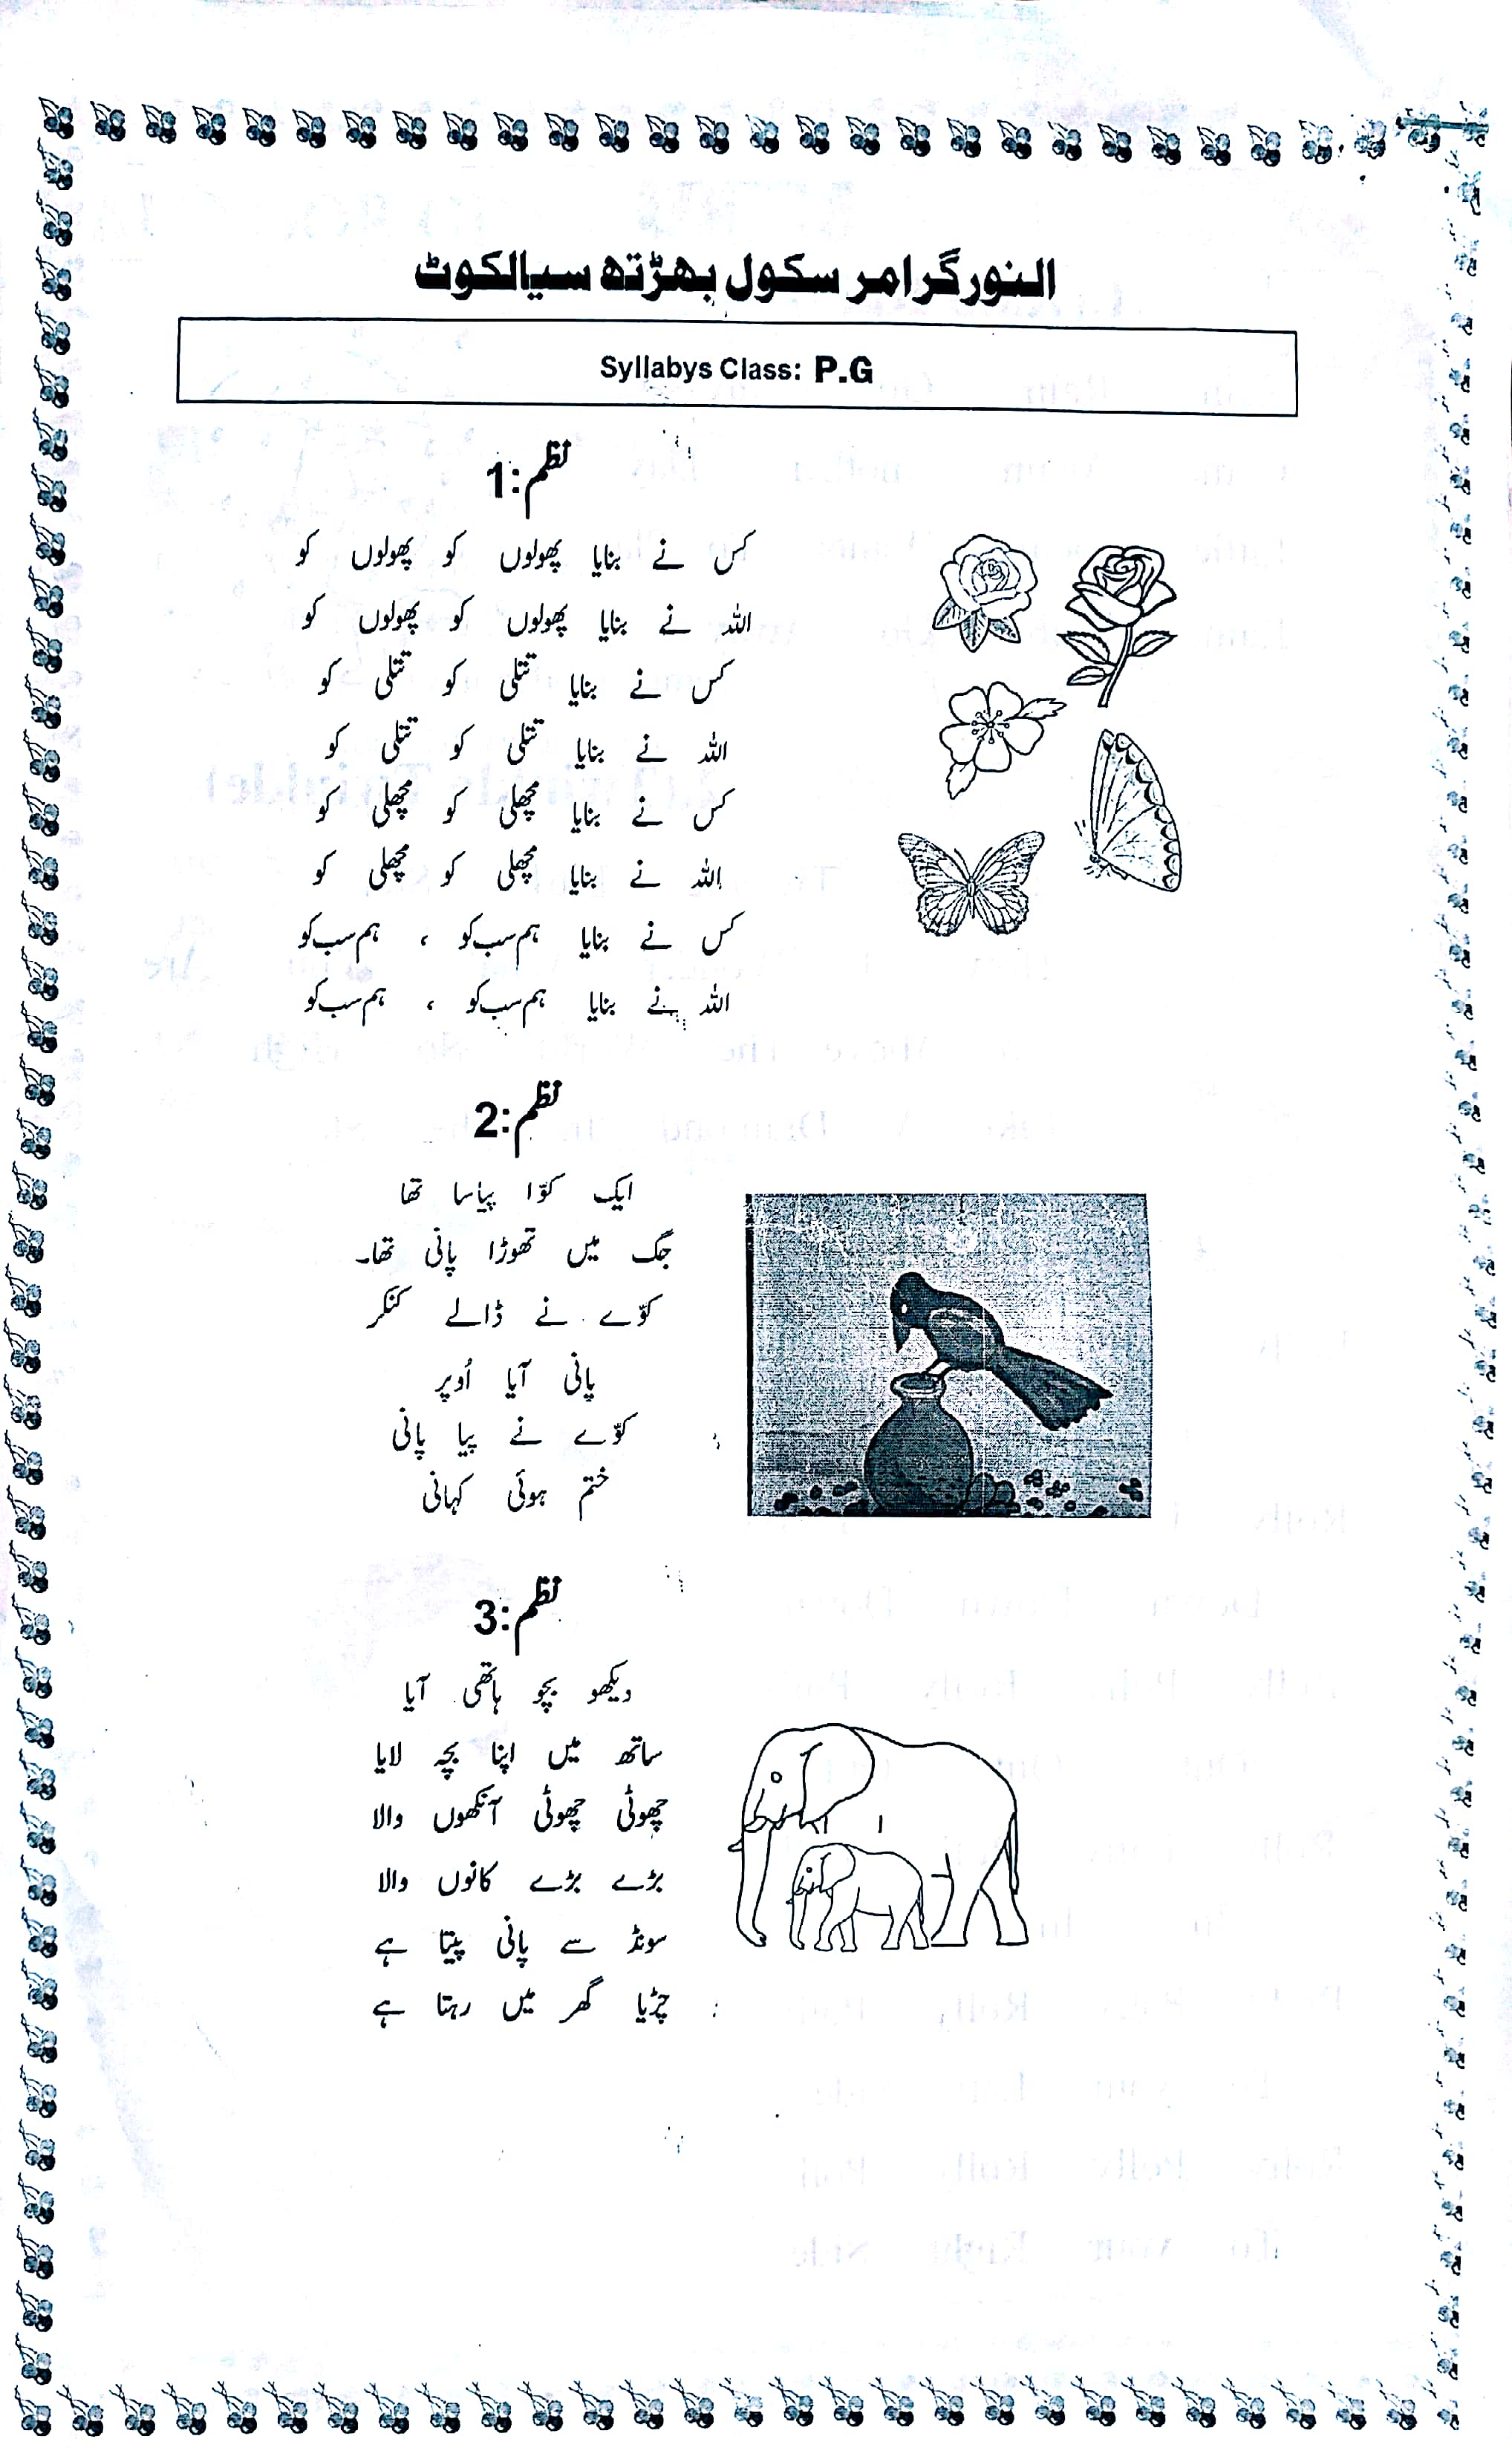 النور گرامر سکول بھڑتھ سیالکوٹ
Syllabys Class: P.G
نظم:1
کس نے بنایا پھولوں کو پھولوں کو
اللہ نے بنایا پھولوں کو پھولوں کو
کس نے بنایا تتلی کو تتلی کو
اللہ نے بنایا تتلی کو تتلی کو
کس نے بنایا مچھلی کو مچھلی کو
اللہ نے بنایا مچھلی کو مچھلی کو
کس نے بنایا ہم سب کو ، ہم سب کو
اللہ نے بنایا ہم سب کو ، ہم سب کو
نظم:2
ایک کوّا پیاسا تھا
جگ میں تھوڑا پانی تھا۔
کوّے نے ڈالے کنکر
پانی آیا اُوپر
کوّے نے پیا پانی
ختم ہوئی کہانی
نظم:3
دیکھو بچو ہاتھی آیا
ساتھ میں اپنا بچہ لایا
چھوٹی چھوٹی آنکھوں والا
بڑے بڑے کانوں والا
سونڈ سے پانی پیتا ہے
چڑیا گھر میں رہتا ہے